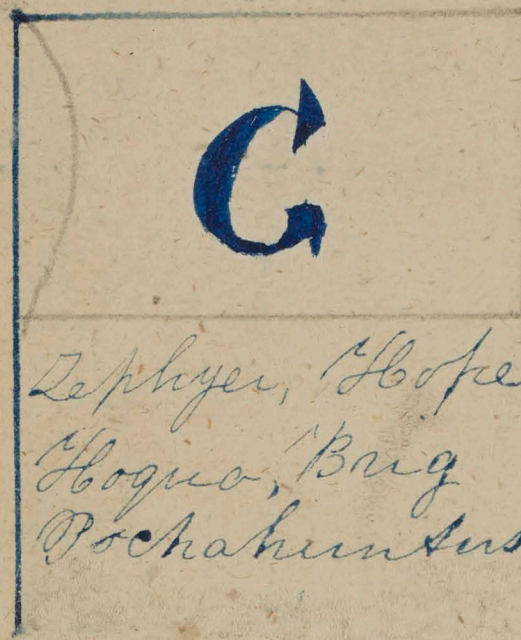 C
Zephyer, Hope
Hoquo, Brig
Pochahuntus